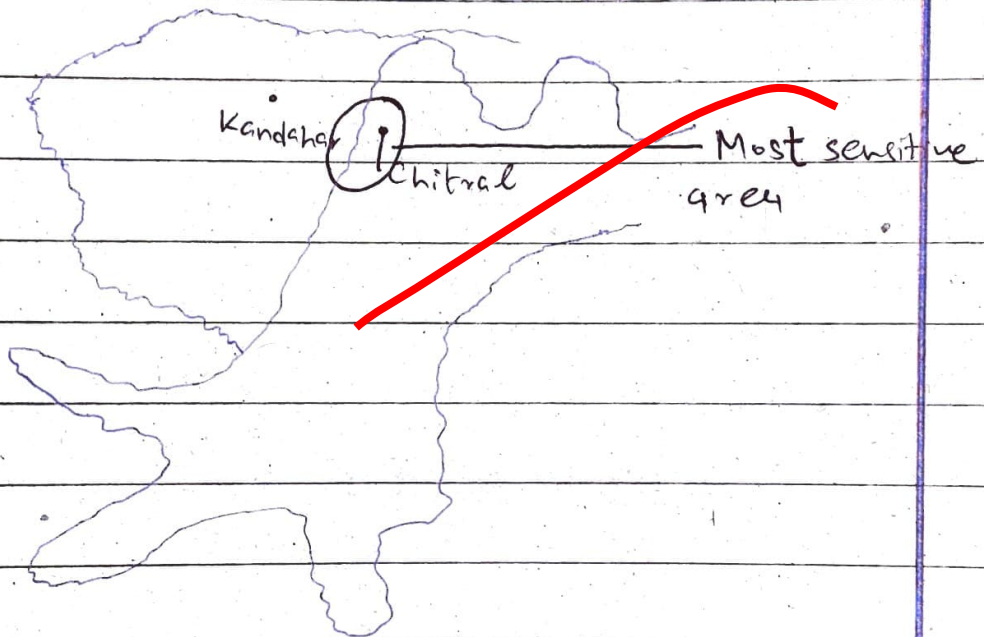 Kandahar
Chitral
Most sensitive
area